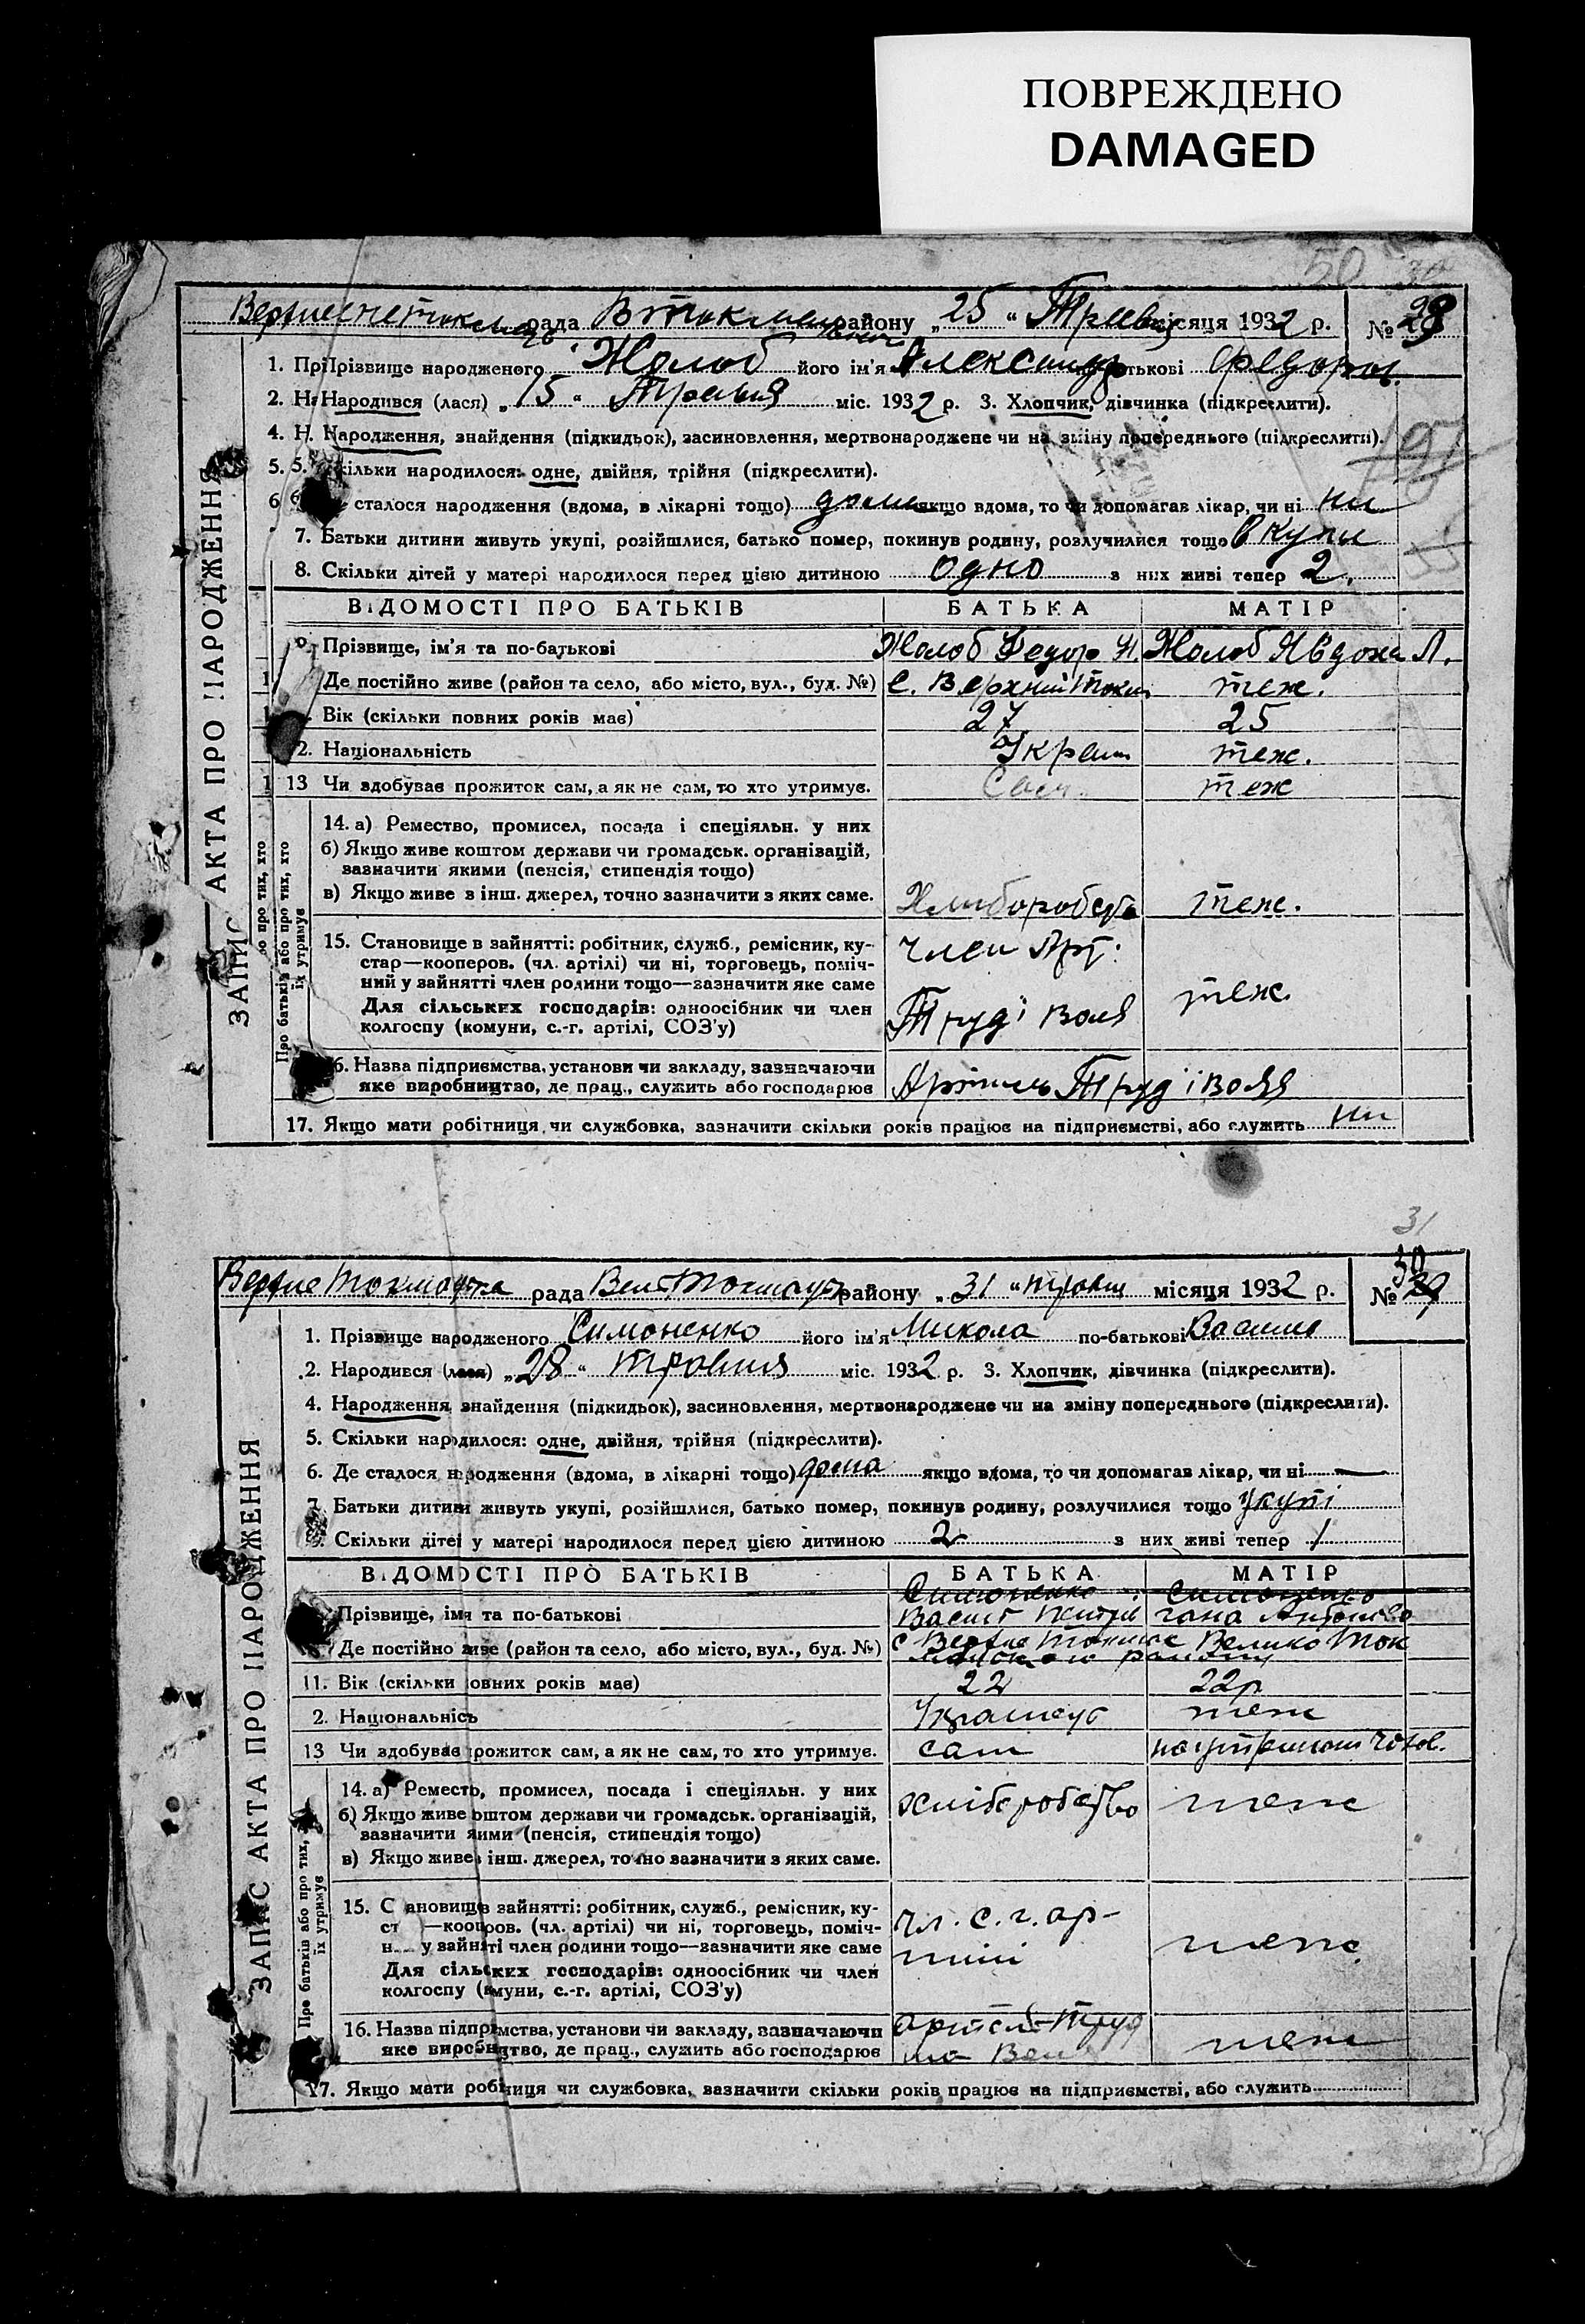 ПОВРЕЖДЕНО
DAMAGED
50 30
рада району „25“ місяця 1932 р. №
1. Прізвище народженого Жолоб його ім'я Александр
2. Народився (лася) „15“ Травня міс. 1932 р. 3. Хлопчик, дівчинка (підкреслити).
4. Народження, знайдення (підкидьок), засиновлення, мертвонароджене чи на зміну попереднього (підкреслити).
5. кільки народилося: одне, двійня, трійня (підкреслити).
6 сталося народження (вдома, в лікарні тощо) дома якщо вдома, то чи допомагав лікар, чи ні ни
7. Батьки дитини живуть укупі, розійшлися, батько помер, покинув родину, розлучилися тощо вкупи
8. Скільки дітей у матері народилося перед цією дитиною одно з них живі тепер 2.
ВІДОМОСТІ ПРО БАТЬКІВ БАТЬКА МАТІР
Прізвище, ім'я та по-батькові Жолоб Федор Жолоб Явдоха Л.
Де постійно живе (район та село, або місто, вул., буд. №) с. Верхний Токм теж.
Вік (скільки повних років має) 27 25
2. Національність Украин теж.
13 Чи здобував прожиток сам, а як не сам, то хто утримує. Сам теж
14. а) Ремество, промисел, посада і спеціяльн. у них
б) Якщо живе коштом держави чи громадськ. організацій,
зазначити якими (пенсія, стипендія тощо)
в) Якщо живе з інш. джерел, точно зазначити з яких саме. теж.
15. Становище в зайнятті: робітник, служб., ремісник, ку-
стар—кооперов. (чл. артілі) чи ні, торговець, поміч-
ний у зайнятті член родини тощо—зазначити яке саме
Для сільських господарів: одноосібник чи член
колгоспу (комуни, с.-г. артілі, СОЗ'у)
Член Арт:
Труд і Воля теж.
6. Назва підприємства, установи чи закладу, зазначаючи
яке виробництво, де прац., служить або господарює Артиль Труд і Воля
17. Якщо мати робітниця, чи службовка, зазначити скільки років працює на підприємстві, або служить ни
ЗАПИС АКТА ПРО НАРОДЖЕННЯ
Про батьків або про тих, хто
їх утримує
31
30
рада району „31“ місяця 1932 р. №
1. Прізвище народженого Симоненко його ім'я Микола по-батькові Василів
2. Народився (лася) „28“ травня міс. 1932 р. 3. Хлопчик, дівчинка (підкреслити).
4. Народження, знайдення (підкидьок), засиновлення, мертвонароджене чи на зміну попереднього (підкреслити).
5. Скільки народилося: одне, двійня, трійня (підкреслити).
6. Де сталося народження (вдома, в лікарні тощо) дома якщо вдома, то чи допомагав лікар, чи ні —
7 Батьки дитини живуть укупі, розійшлися, батько помер, покинув родину, розлучилися тощо укупі
Скільки дітей у матері народилося перед цією дитиною 2 з них живі тепер 1
ВІДОМОСТІ ПРО БАТЬКІВ БАТЬКА МАТІР
Прізвище, імя та по-батькові Симоненко Симоненко
Де постійно живе (район та село, або місто, вул., буд. №) с Верхне Токмак Велико Ток
11. Вік (скільки повних років має) 22 22р
2. Національнісь Українец теж
13 Чи здобував прожиток сам, а як не сам, то хто утримує. сам
14. а) Реместь, промисел, посада і спеціяльн. у них
б) Якщо живе коштом держави чи громадськ. організацій,
зазначити якими (пенсія, стипендія тощо)
в) Якщо живе з інш. джерел, точно зазначити з яких саме.
хліборобство теж
15. Становище в зайнятті: робітник, служб., ремісник, ку-
ст —кооперов. (чл. артілі) чи ні, торговець, поміч-
у зайнятті член родини тощо—зазначити яке саме
Для сільських господарів: одноосібник чи член
колгоспу (комуни, с.-г. артілі, СОЗ'у)
чл. с. г. ар-
тілі теж
16. Назва підприємства, установи чи закладу, зазначаючи
яке виробництво, де прац., служить або господарює артель Труд теж
17. Якщо мати робітниця чи службовка, зазначити скільки років працює на підприємстві, або служить
ЗАПИС АКТА ПРО НАРОДЖЕННЯ
Про батьків або про тих,
їх утримує